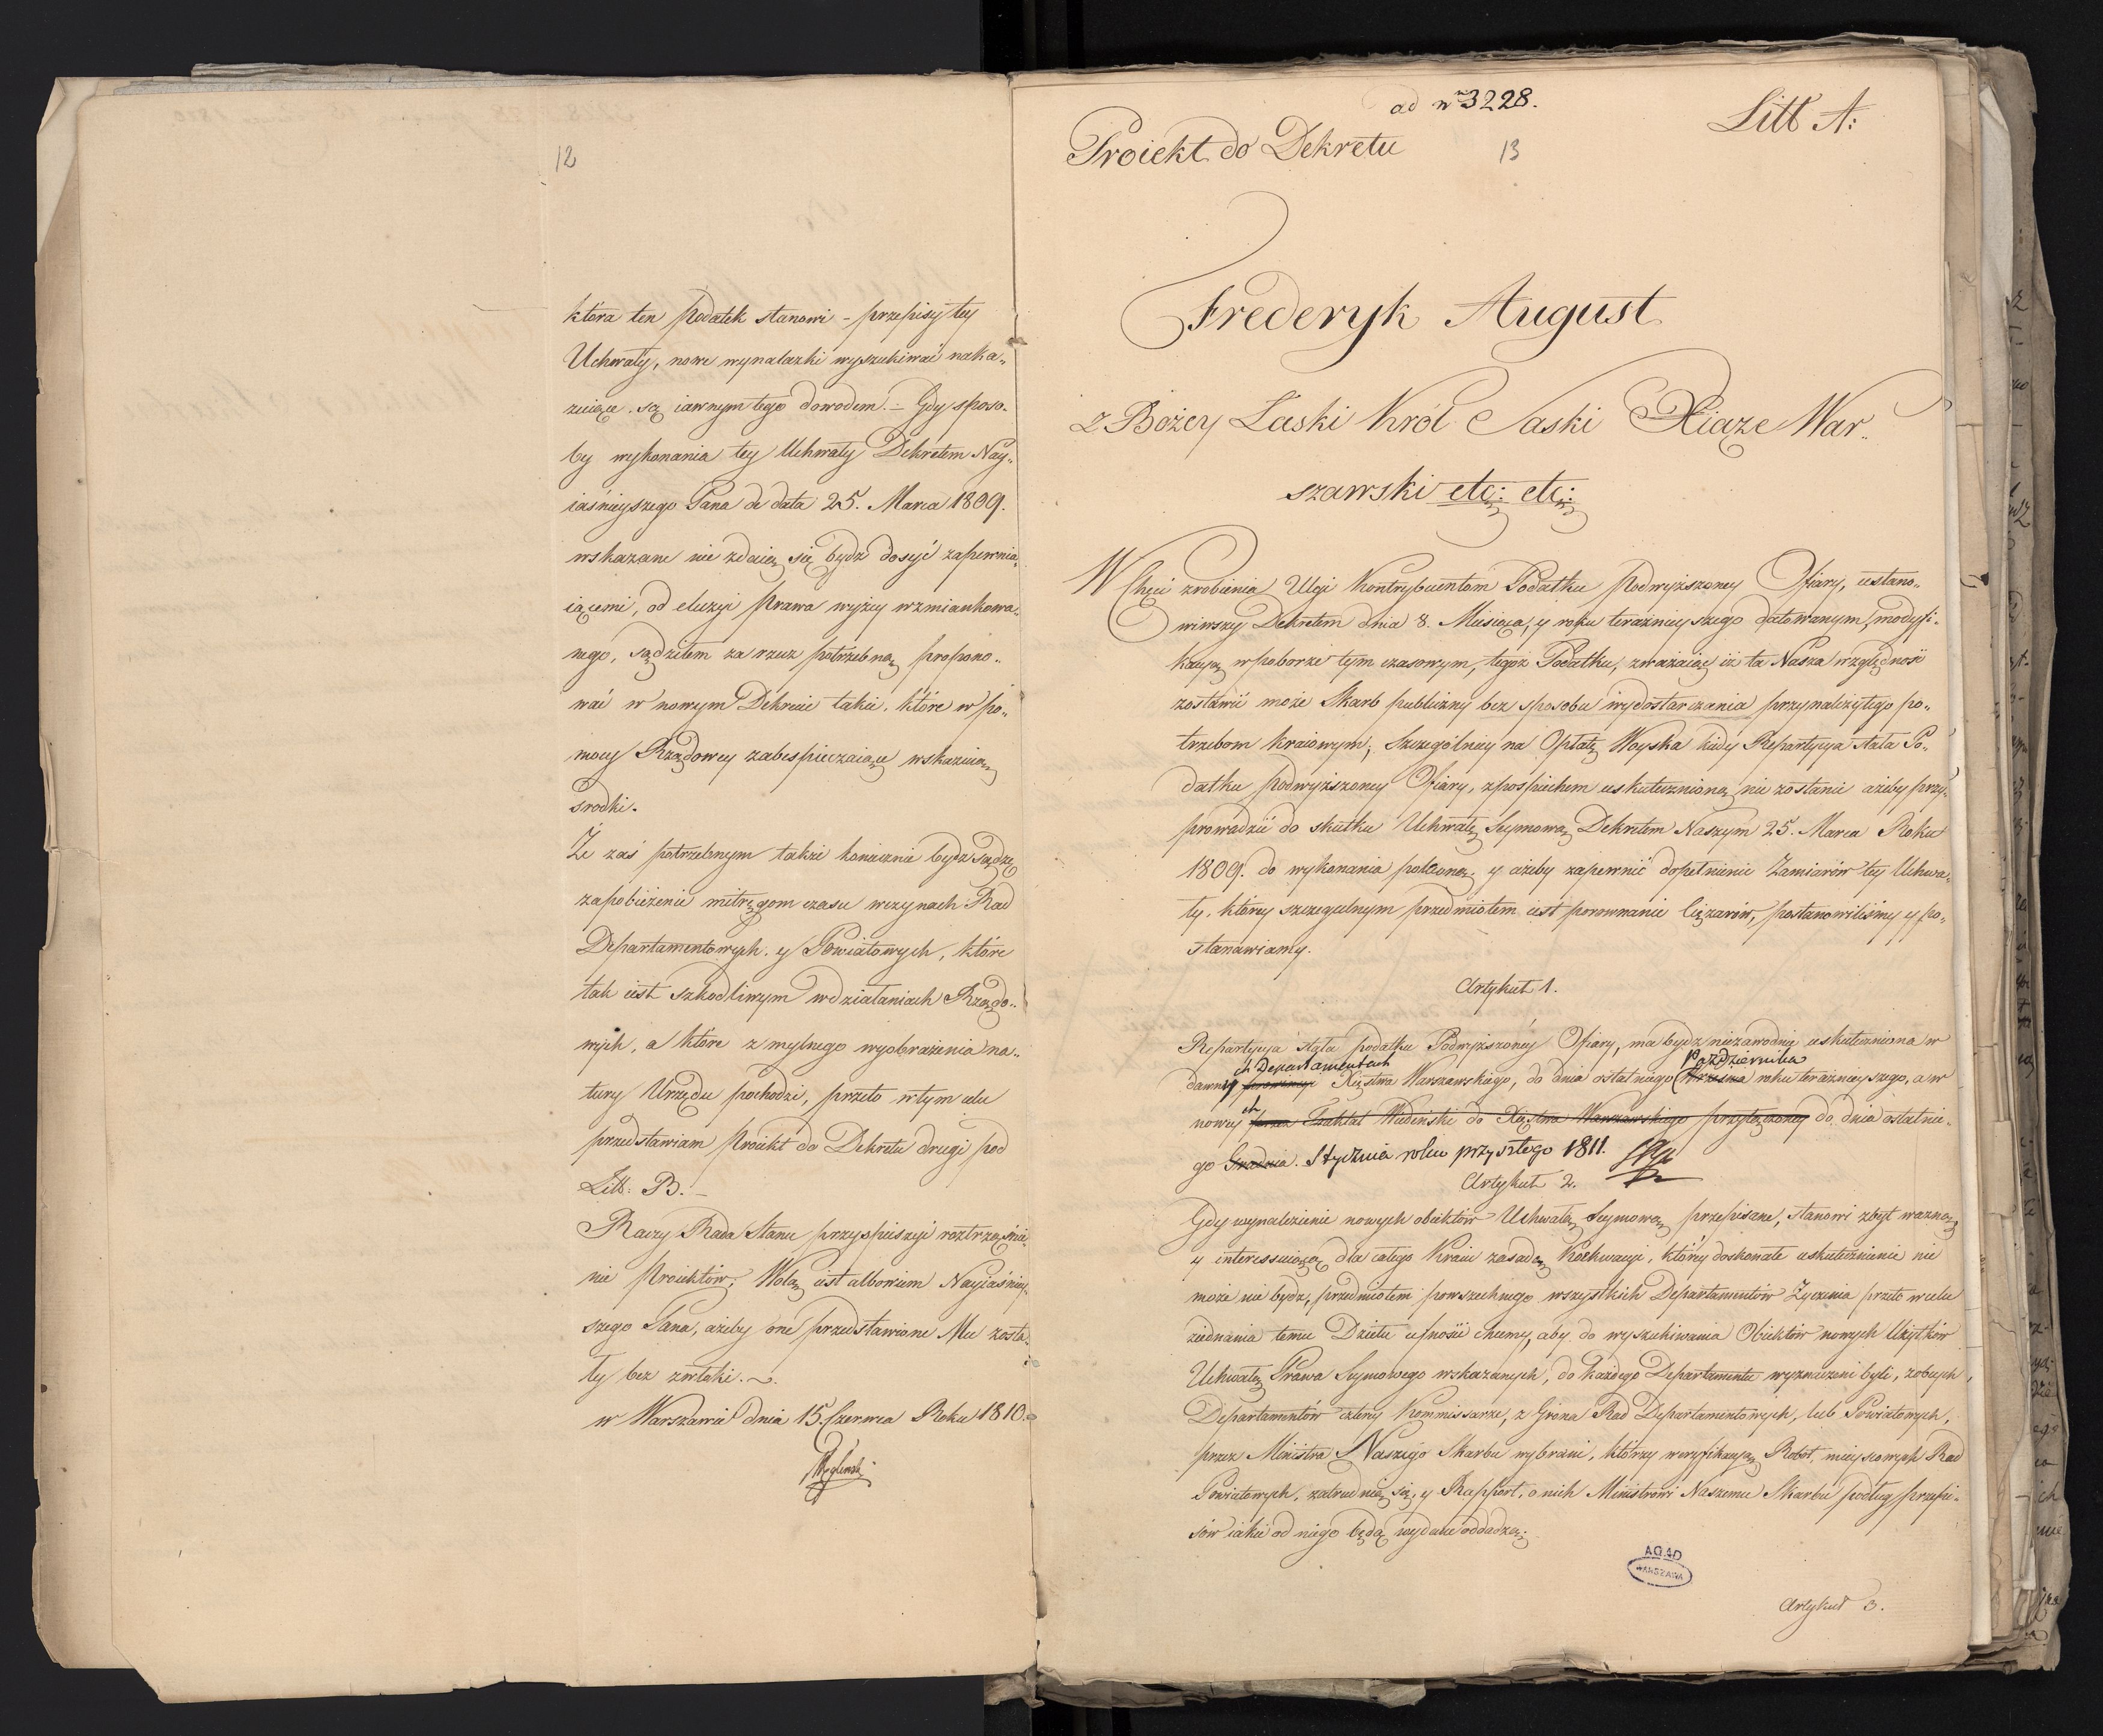 12
która ten Podatek stanowi - przepisy tey
Uchwały, nowe wynalazki wyszukiwać naka„
zuiące są iawnym tego dowodem. – Gdy sposo„
by wykonania tey Uchwały Dekretem Nay„
iaśnieyszego Pana de data 25. Marca 1809.
wskazane nie zdaią się bydź dosyć zapewnia„
iącemi, od eluzyi Prawa wyżey wzmiankowa„
nego, sądziłem za rzecz potrzebną propono„
wać w nowym Dekrecie takie, które w po„
mocy Rządowey zabespieczaiące wskazuią
środki.
Że zaś potrzebnym także koniecznie bydź sądzę
zapobieżenie mitręgom czasu w czynach Rad
Departamentowych y Powiatowych, które
tak iest szkodliwym w działaniach Rządo„
wych, a które z mylnego wyobrażenia na„
tury Urzędu pochodzi, przeto w tym celu
przedstawiam Proiekt do Dekretu drugi pod
Litt: B. –
Raczy Rada Stanu przyspieszyć roztrząśnie„
nie Proiektów; Wolą iest albowiem Nayiaśniey„
szego Pana, ażeby one przedstawione Mu zosta„
ły bez zwłoki. ~.
w Warszawie dnia 15. Czerwca Roku 1810.
Węgleński
ad nrm 3228.
Litt A:
Proiekt do Dekretu
13
Frederyk August
z Bożey Łaski Król Saski Xiąże War„
szawski etc: etc:
W Chęci zrobienia Ulgi Kontrybuentom Podatku Podwyższoney Ofiary, ustano„
wiwszy Dekretem dnia 8. Miesiąca, y roku teraźnieyszego datowanym, modyfi„
kacyą w poborze tym czasowym, tegoż Podatku, zważaiąc iż ta Nasza względność
zostawić może Skarb publiczny bez sposobu wydostarczania przynależytego po„
trzebom kraiowym; szczególniey na Opłatę Woyska kiedy Repartycya stała Po„
datku Podwyższoney Ofiary, z pospiechem uskutecznioną nie zostanie ażeby przy„
prowadzić do skutku Uchwałę Seymową Dekretem Naszym 25. Marca Roku
1809. do wykonania poleconą y ażeby zapewnić dopełnienie Zamiarów tey Uchwa„
ły, którey szczegulnym przedmiotem iest porównanie Ciężarów, postanowiliśmy y po„
stanawiamy.
Artykuł 1.
Repartycya stała podatku Podwyższoney Ofiary, ma bydź niezawodnie uskuteczniona w
ch Departamentach Października
dawney prowincyi Xięstwa Warszawskiego, do dnia ostatniego Września roku teraźnieyszego, a w
ch
nowey przez Traktat Wiedeński do Xięstwa Warszawskiego przyłączoney do dnia ostatnie„
go Grudnia. Stycznia roku przyszłego 1811.
Artykuł 2.
Gdy wynalezienie nowych obiektów Uchwałą Seymową przepisane, stanowi zbyt ważną
y interessuiącą dla całego Kraiu zasadę Koekwacyi, którey doskonałe uskutecznienie nie
może nie bydź, przedmiotem powszechnego wszystkich Departamentów Życzenia przeto w celu
ziednania temu Dziełu ufności chcemy, aby do wyszukiwania Obiektów nowych Użytków
Uchwałą Prawa Seymowego wskazanych, do każdego Departamentu wyznaczeni byli, z obcych
Departamentów cztery Kommissarze, z Grona Rad Departamentowych, lub Powiatowych,
przez Ministra Naszego Skarbu wybrani, którzy weryfikacyą Robót, mieyscowych Rad
Powiatowych, zatrudnią się, y Rapport, o nich Ministrowi Naszemu Skarbu podług przepi„
sów iakie od niego będą wydane oddadzą.
AGAD
WARSZAWA
Artykuł 3.